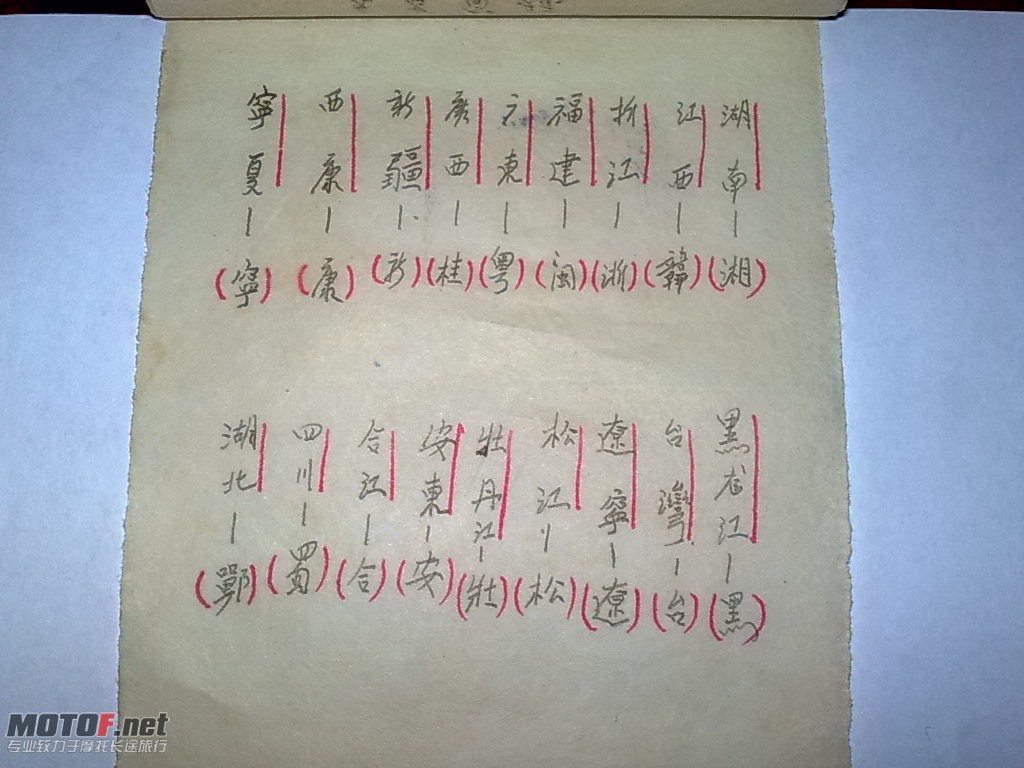 湖南—(湘)
江西—(赣)
浙江—(浙)
福建—(闽)
广東—(粵)
广西—(桂)
新疆—(新)
西康—(康)
寧夏—(寧)
黑龙江—(黑)
台灣—(台)
遼寧—(遼)
松江—(松)
牡丹江—(牡)
安東—(安)
合江—(合)
四川—(蜀)
湖北—(鄂)
MOTOF.net
专业致力于摩托长途旅行